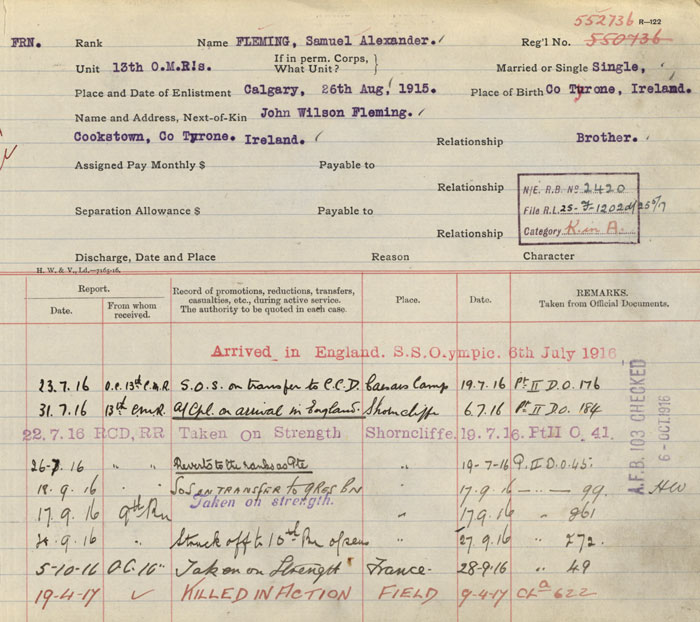 552736 R—122
FRN. Rank Name FLEMING, Samuel Alexander. Reg'l No. 550736
Unit 13th O.M.R!s. If in perm. Corps, What Unit? } Married or Single Single,
Place and Date of Enlistment Calgary, 26th Aug, 1915. Place of Birth Co Tyrone, Ireland.
Name and Address, Next-of-Kin John Wilson Fleming.
Cookstown, Co Tyrone. Ireland. Relationship Brother.
Assigned Pay Monthly $ Payable to
Relationship
N/E. R.B. No 2420
File R.L. 25-F-1202
Separation Allowance $ Payable to
Category K. in A.
Relationship
Discharge, Date and Place Reason Character
H. W. & V., Ld.—7165-16.
Report. Record of promotions, reductions, transfers, casualties, etc., during active service. The authority to be quoted in each case. Place. Date. REMARKS. Taken from Official Documents.
Date. From whom received.
Arrived in England. S.S.Olympic. 6th July 1916
23.7.16 O.C. 13th C.M.R. S.O.S. on transfer to C.C.D. Caesars Camp 19.7.16 Pt II D.O. 176
31.7.16 13th C.M.R. A/Cpl. on arrival in England. Shorncliffe 6.7.16 Pt II D.O. 184
22.7.16 RCD, RR Taken on Strength Shorncliffe. 19.7.16. Pt II O. 41.
26-7.16 " " Reverts to the ranks as Pte " 19-7-16 P. II D.O. 45.
18.9.16 " " SoS on TRANSFER to 9 RES BN " 17.9.16 — " — 99. HW
Taken on strength.
17.9.16 9th Bn " 17.9.16 " 261
9.16 " Struck off to 10th Bn o'seas " 27.9.16 " 272.
5-10-16 O.C. 10" Taken on Strength France. 28-9-16 " 49
19-4-17 KILLED IN ACTION FIELD 9-4-17 622
A.F.B. 103 CHECKED
6-OCT.1916